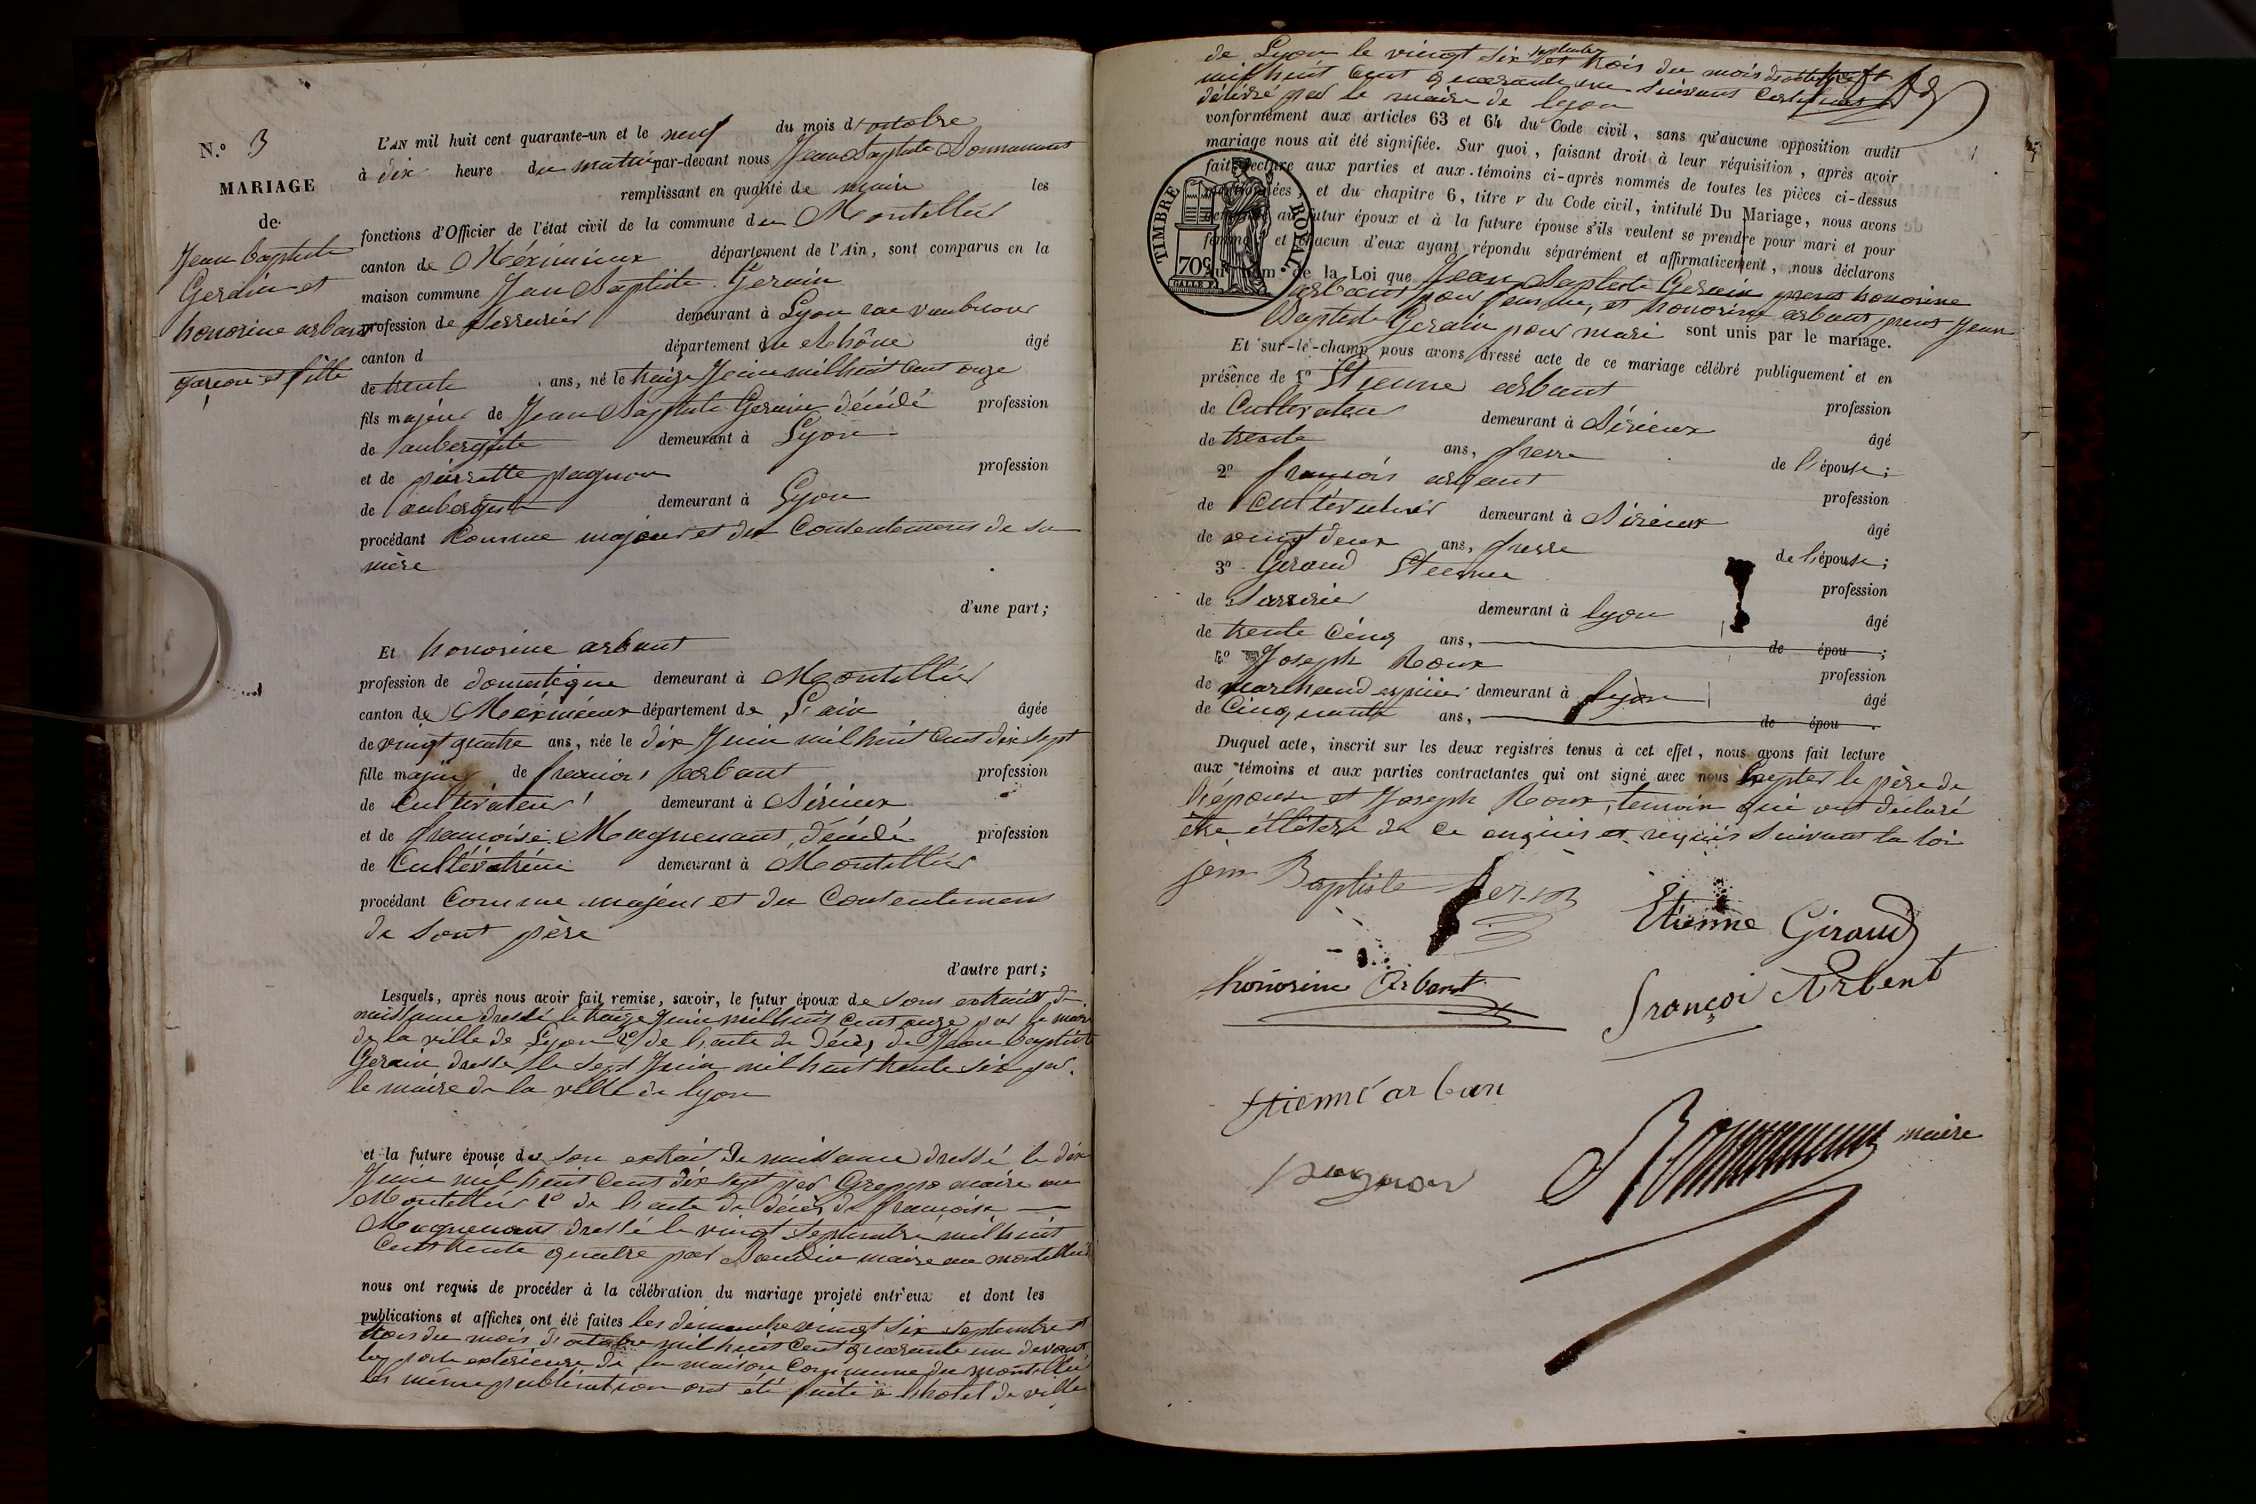 N.º 3
MARIAGE
de
Jean baptiste
Gerain et
honorine arbant
garçon et fille
L'AN mil huit cent quarante-un et le neuf du mois d'octobre
à dix heure du matin par-devant nous Jean Baptiste
remplissant en qualité de maire les
fonctions d'Officier de l'état civil de la commune du Montellier
canton de Méximieux département de l'Ain, sont comparus en la
maison commune Jean Baptiste Gerain
profession de Serrurier demeurant à Lyon rue
canton d département du Rhône âgé
de trente ans, né le treize Juin mil huit cent onze
fils majeur de Jean Baptiste Gerain décédé profession
de aubergiste demeurant à Lyon
et de pierrette pagnon profession
de aubergiste demeurant à Lyon
procédant comme majeur et du Consentement de sa
mère
d'une part;
Et honorine arbant
profession de domestique demeurant à Montellier
canton de Méximieux département de L'ain âgée
de vingt quatre ans, née le dix Juin mil huit cent dix sept
fille majeur de francois arbant profession
de Cultivateur demeurant à Bérieux
et de francoise Magnenant, décédé profession
de Cultivatrice demeurant à Montellier
procédant Comme majeur et du Consentement
de sont père
d'autre part;
Lesquels, après nous avoir fait remise, savoir, le futur époux de Sons extrait de
naissance dressé le treize Juin mil huit cent onze par le maire
de la ville de Lyon 2º de l'acte de décès de Jean baptiste
Gerain dressé le sept Juin mil huit trente six par
le maire de la ville de lyon
et la future épouse de son extrait de naissance dressé le dix
Juin mil huit cent dix sept par Greppo maire au
Montellier 2º de l'acte de décès de francoise
Magnenant dressé le vingt Septembre mil huit
cent trente quatre par maire au montellier
nous ont requis de procéder à la célébration du mariage projeté entr'eux et dont les
publications et affiches ont été faites les dimanche vingt six septembre et
trois du mois d'octobre mil huit cent quarante un devant
la porte extérieure de la maison Commune du montellier
les même publication ont été faite à l'hotel de ville
de Lyon le vingt six septembre et trois du mois
mil huit cent quarante un suivant certificat
délivré par le maire de lyon
conformément aux articles 63 et 64 du Code civil, sans qu'aucune opposition audit
mariage nous ait été signifiée. Sur quoi, faisant droit à leur réquisition, après avoir
fait lecture aux parties et aux témoins ci-après nommés de toutes les pièces ci-dessus
mentionnées, et du chapitre 6, titre v du Code civil, intitulé Du Mariage, nous avons
demandé au futur époux et à la future épouse s'ils veulent se prendre pour mari et pour
femme; et chacun d'eux ayant répondu séparément et affirmativement, nous déclarons
au nom de la Loi que Jean Baptiste Gerain prend honorine
arbant pour femme, et honorine arbant prend Jean
Baptiste Gerain pour mari sont unis par le mariage.
TIMBRE ROYAL.
70c
Et sur-le-champ nous avons dressé acte de ce mariage célébré publiquement et en
présence de 1º Etienne arbant profession
de Cultivateur demeurant à Bérieux âgé
de trente ans, frerre de l'épouse;
2º francois arbant profession
de Cultivateur demeurant à Bérieux âgé
de vingt deux ans, frerre de l'épouse;
3º Giraud Etienne profession
de Serrurier demeurant à lyon âgé
de trente cinq ans, de épou ;
4º Joseph Roux profession
de marchand epicier demeurant à lyon âgé
de Cinquante ans, de épou .
Duquel acte, inscrit sur les deux registres tenus à cet effet, nous avons fait lecture
aux témoins et aux parties contractantes qui ont signé avec nous excepter le père de
l'épouse et Joseph Roux, temoin qui ont déclaré
être illétéré de ce enquis et requis suivant la loi
jean Baptiste
Etienne Giraud
honorine Arbant
françoi Arbent
Etienne arban
pagnon
maire